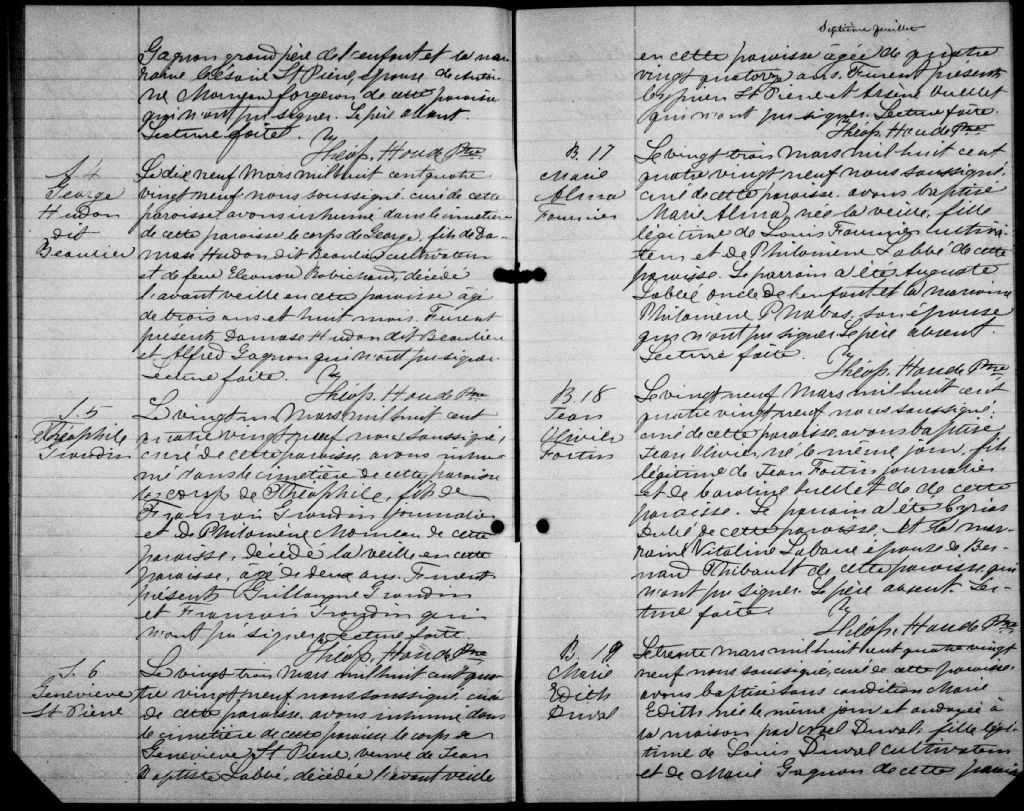 Gagnon grand père de l'enfant et la mar-
raine Césarie St Pierre épouse de
ne forgeron de cette paroisse
qui n'ont pu signer. Le père absent.
Lecture faite.
Théop. Houde Ptre
S. 4
George
Hudon
dit
Beaulieu
Le dix neuf Mars mil huit cent quatre
vingt neuf nous soussigné curé de cette
paroisse avons inhumé dans le cimetière
de cette paroisse le corps de George, fils de Da-
mase Hudon dit Beaulieu cultivateur
et de feue Eleonore Robichaud, décédé
l'avant veille en cette paroisse âgé
de trois ans et huit mois. Furent
présents Damase Hudon dit Beaulieu
et Alfred Gagnon qui n'ont pu signer
Lecture faite.
Théop. Houde Ptre
S. 5
Théophile
Grondin
Le vingt un Mars mil huit cent
quatre vingt neuf nous soussigné,
curé de cette paroisse, avons inhu-
mé dans le cimetière de cette paroisse
le corps de Théophile, fils de
François Grondin journalier
et de Philomène Moreau de cette
paroisse, décédé la veille en cette
paroisse, âgé de deux ans. Furent
présents Guillaume Grondin
et François Grondin qui
n'ont pu signer. Lecture faite.
Théop. Houde Ptre
S. 6
Geneviève
St Pierre
Le vingt trois Mars mil huit cent qua-
tre vingt neuf nous soussigné curé
de cette paroisse avons inhumé dans
le cimetière de cette paroisse le corps de
Geneviève St Pierre, veuve de Jean
Baptiste Labbé, décédée l'avant veille
Septième feuillet
en cette paroisse âgée de quatre
vingt quatorze ans. Furent présents
St Pierre et Arsène Ouellet
qui n'ont pu signer. Lecture faite.
Théop. Houde Ptre
B. 17
Marie
Alma
Fournier
Le vingt trois mars mil huit cent
quatre vingt neuf nous soussigné,
curé de cette paroisse, avons baptisé
Marie Alma, née la veille, fille
légitime de Louis Fournier cultiva-
teur et de Philomène Labbé de cette
paroisse. Le parrain a été Auguste
Labbé oncle de l'enfant et la marraine
Philomène son épouse
qui n'ont pu signer. Le père absent.
Lecture faite.
Théop. Houde Ptre
B. 18
Jean
Olivier
Fortin
Le vingt neuf Mars mil huit cent
quatre vingt neuf nous soussigné,
curé de cette paroisse, avons baptisé
Jean Olivier, né le même jour, fils
légitime de Jean Fortin journalier
et de Caroline Ouellet de de cette
paroisse. Le parrain a été Cyrias
Dubé de cette paroisse, et la mar-
raine Vitaline épouse de Ber-
nard Thibault de cette paroisse qui
n'ont pu signer. Le père absent. Lec-
ture faite.
Théop. Houde Ptre
B. 19
Marie
Edith
Duval
Le trente mars mil huit cent quatre vingt
neuf nous soussigné, curé de cette paroisse
avons baptisé sous condition Marie
Edith née le même jour et ondoyée à
la maison par Duval, fille légi-
time de Louis Duval cultivateur
et de Marie Gagnon de cette parois